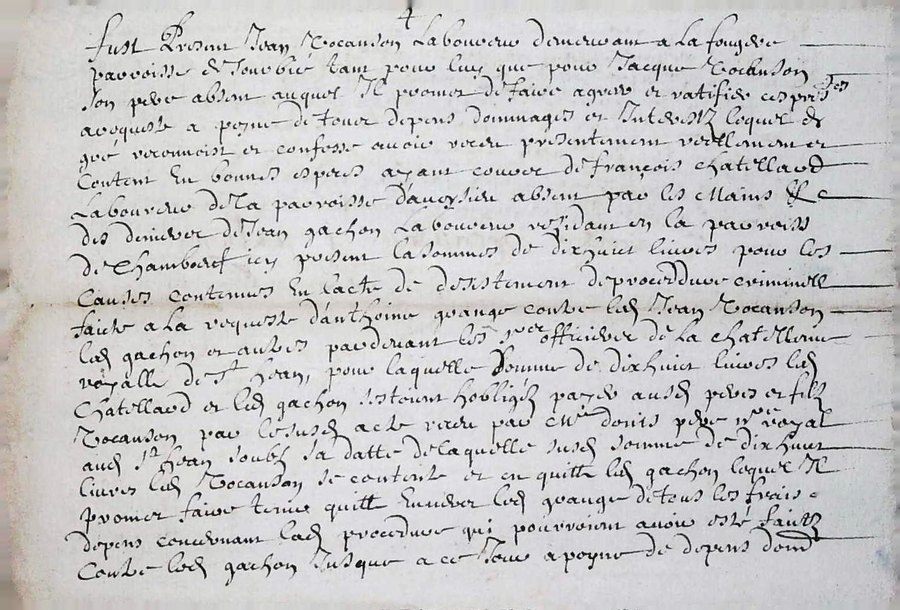 4
fust Present Jean Vocanson Laboureur demeurant a La fougere
parroisse de Jourbié tant pour luy que pour Jacque Vocanson
son pere absent auquel Il promet de faire agreer et ratifier ces pntes
avoqueste a peyne de touer depens dommages et Interestz lequel de
gré reconnoist et confesse avoir receu presentement reellement et
Contant En bonnes especes ayant cource de françois chatellard
Laboureur de La parroisse daveysieu absent par les mains &c
des deniers de Jean gachon Laboureur residant en la parroiss
de Chambœuf icy present la sommes de dixhuict livres pour les
Causes contenues En lacte de desistement de procedure criminell
faicte a La requeste danthoine grange contre led Jean Vocanson
led gachon et autres pardevant les srs officiers de la chatellenie
royalle de St Jean, pour laquelle somme de dixhuict livres led
Chatellard et led gachon sestoient hobligés payer ausd peres et filz
Vocanson par le susd acte receu par me donis pere nre royal
aud St Jean soubz sa datte de laquelle susd somme de dixhuict
livres led Vocanson se contente et en quitte led gachon lequel Il
promet faire tenir quitte Envers led grange de tous les frais
depens concernant lad procedure qui pourroient avoir esté faitz
Contre led gachon Jusque a ce Jour a peyne de depens dom